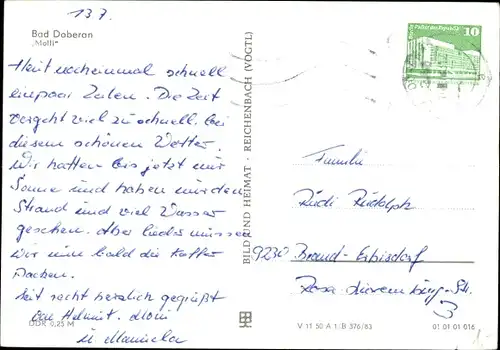 13.7.
Bad Doberan
„Molli"
Heut nocheinmal schnell
ein paar Zeilen. Die Zeit
vergeht viel zu schnell bei
diesem schönen Wetter.
Wir hatten bis jetzt nur
Sonne und haben nur den
Strand und viel Wasser
gesehen. Aber müssen
wir nun bald die Koffer
packen.
Seit recht herzlich gegrüßt
von Helmut,
u. Manuela
DDR 0,25 M
BILD UND HEIMAT · REICHENBACH (VOGTL)
10
Familie
Rudi Rudolph
9230 Brand-Erbisdorf
Rosa-Luxemburg-Str.
3
V 11 50 A 1, B 376/83
01 01 01 016